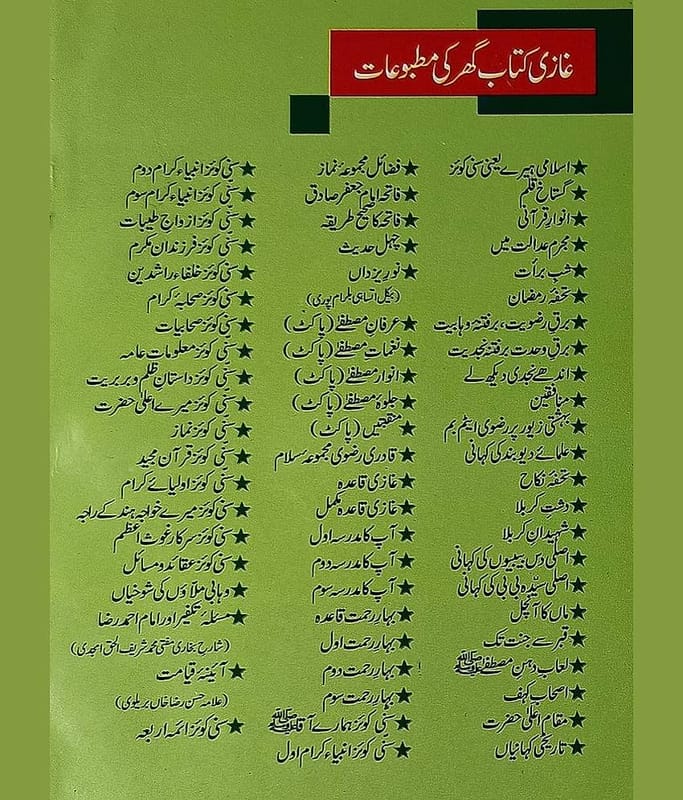 غازی کتاب گھر کی مطبوعات
★اسلامی ہیرے یعنی سنی کوئز
★گستاخ قلم
★انوار قرآنی
★مجرم عدالت میں
★شبِ برأت
★تحفۂ رمضان
★برقِ رضویت، برفتنۂ وہابیت
★برقِ وحدت برفتنۂ نجدیت
★اندھے نجدی دیکھ لے
★منافقین
★بہشتی زیور پر رضوی ایٹم بم
★علمائے دیوبند کی کہانی
★تحفۂ نکاح
★دشتِ کربلا
★شہیدانِ کربلا
★اصلی دس بیبیوں کی کہانی
★اصلی سیّدہ بی بی کی کہانی
★ماں کا آنچل
★قبر سے جنت تک
★لعاب دہن مصطفےٰ ﷺ
★اصحاب کہف
★مقام اعلیٰ حضرت
★تاریخی کہانیاں
★فضائل مجموعۂ نماز
★فاتحہ امام جعفر صادق
★فاتحہ کا صحیح طریقہ
★چہل حدیث
★نورِ یزداں
(بیکل اتساہی بلرام پوری)
★عرفانِ مصطفےٰ (پاکٹ)
★نغماتِ مصطفےٰ (پاکٹ)
★انوار مصطفےٰ (پاکٹ)
★جلوۂ مصطفےٰ (پاکٹ)
★منقبتیں (پاکٹ)
★قادری رضوی مجموعہ سلام
★غازی قاعدہ
★غازی قاعدہ مکمل
★آپ کا مدرسہ اول
★آپ کا مدرسہ دوم
★آپ کا مدرسہ سوم
★بہارِ رحمت قاعدہ
★بہارِ رحمت اول
★بہارِ رحمت دوم
★بہارِ رحمت سوم
★سنّی کوئز ہمارے آقا ﷺ
★سنّی کوئز انبیاء کرام اول
★سنّی کوئز انبیاء کرام دوم
★سنّی کوئز انبیاء کرام سوم
★سنّی کوئز ازواجِ طیبات
★سنّی کوئز فرزندان مکرم
★سنّی کوئز خلفاء راشدین
★سنّی کوئز صحابۂ کرام
★سنّی کوئز صحابیات
★سنّی کوئز معلومات عامہ
★سنّی کوئز داستان ظلم و بربریت
★سنّی کوئز میرے اعلیٰ حضرت
★سنّی کوئز نماز
★سنّی کوئز قرآن مجید
★سنّی کوئز اولیائے کرام
★سنّی کوئز میرے خواجہ ہند کے راجہ
★سنّی کوئز سرکار غوث اعظم
★سنّی کوئز عقائد و مسائل
★وہابی ملاؤں کی شوخیاں
★مسئلہ تکفیر اور امام احمد رضا
(شارح بخاری مفتی محمد شریف الحق امجدی)
★آئینۂ قیامت
(علامہ حسن رضا خاں بریلوی)
★سنی کوئز ائمہ اربعہ